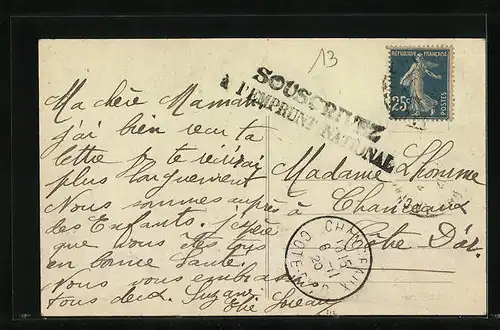 13
SOUSCRIVEZ
à l'EMPRUNT NATIONAL
REPUBLIQUE FRANÇAISE
25c
POSTES
Ma chère Maman
j'ai bien recu ta
lettre je te écrirai
plus longuement
Nous sommes auprès
des Enfants. j'espère
que vous êtes tous
en bonne Santé.
Nous vous embrassons
tous deux. Suzanne
Elie
Madame Lhomme
à Chanceaux
Côte D'or.
CHANCEAUX
COTE-D'OR